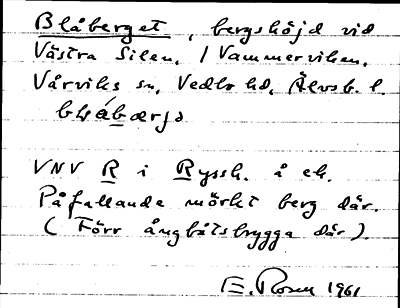 Blåberget, bergshöjd vid
Västra Silen, / Vammerviken.
Vårviks sn, Vedbo hd, Älvsb. l.
blåbærjə
VNV R i Ryssk. å ek.
Påfallande mörkt berg där.
(Förr ångbåtsbrygga där).
E. Rosen 1961